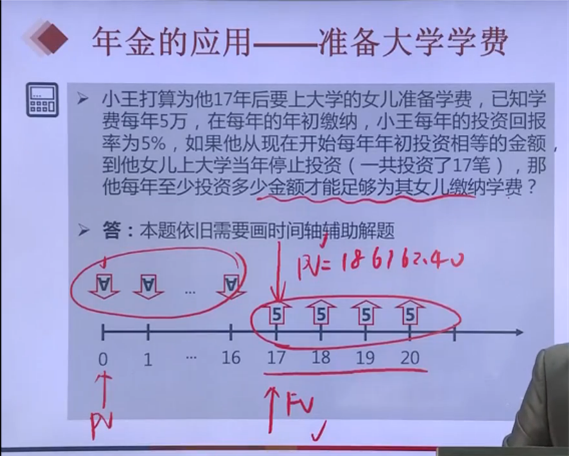 年金的应用——准备大学学费
小王打算为他17年后要上大学的女儿准备学费，已知学
费每年5万，在每年的年初缴纳，小王每年的投资回报
率为5%，如果他从现在开始每年年初投资相等的金额，
到他女儿上大学当年停止投资（一共投资了17笔），那
他每年至少投资多少金额才能足够为其女儿缴纳学费？
答：本题依旧需要画时间轴辅助解题
PV=186162.40
A A ... A
5 5 5 5
0 1 ... 16 17 18 19 20
PV FV